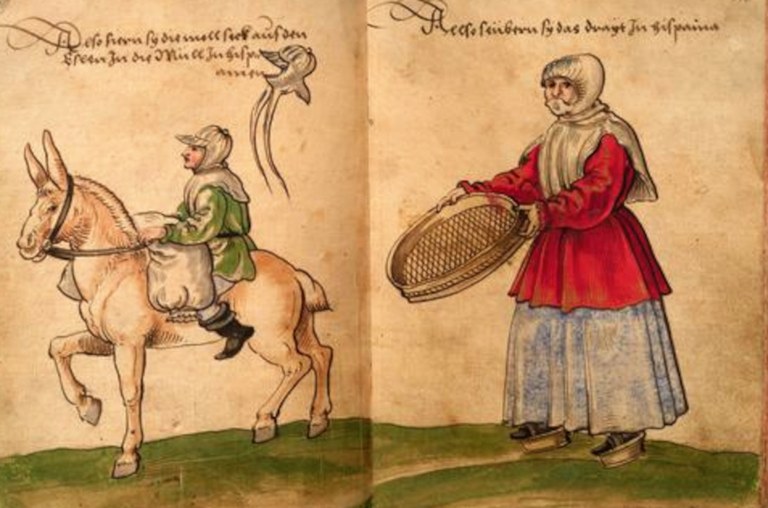 Also fiern sy die mell seck auf den
Eslen In die Müll In hispa
anien
Also seübern sy das drayt In hispaina